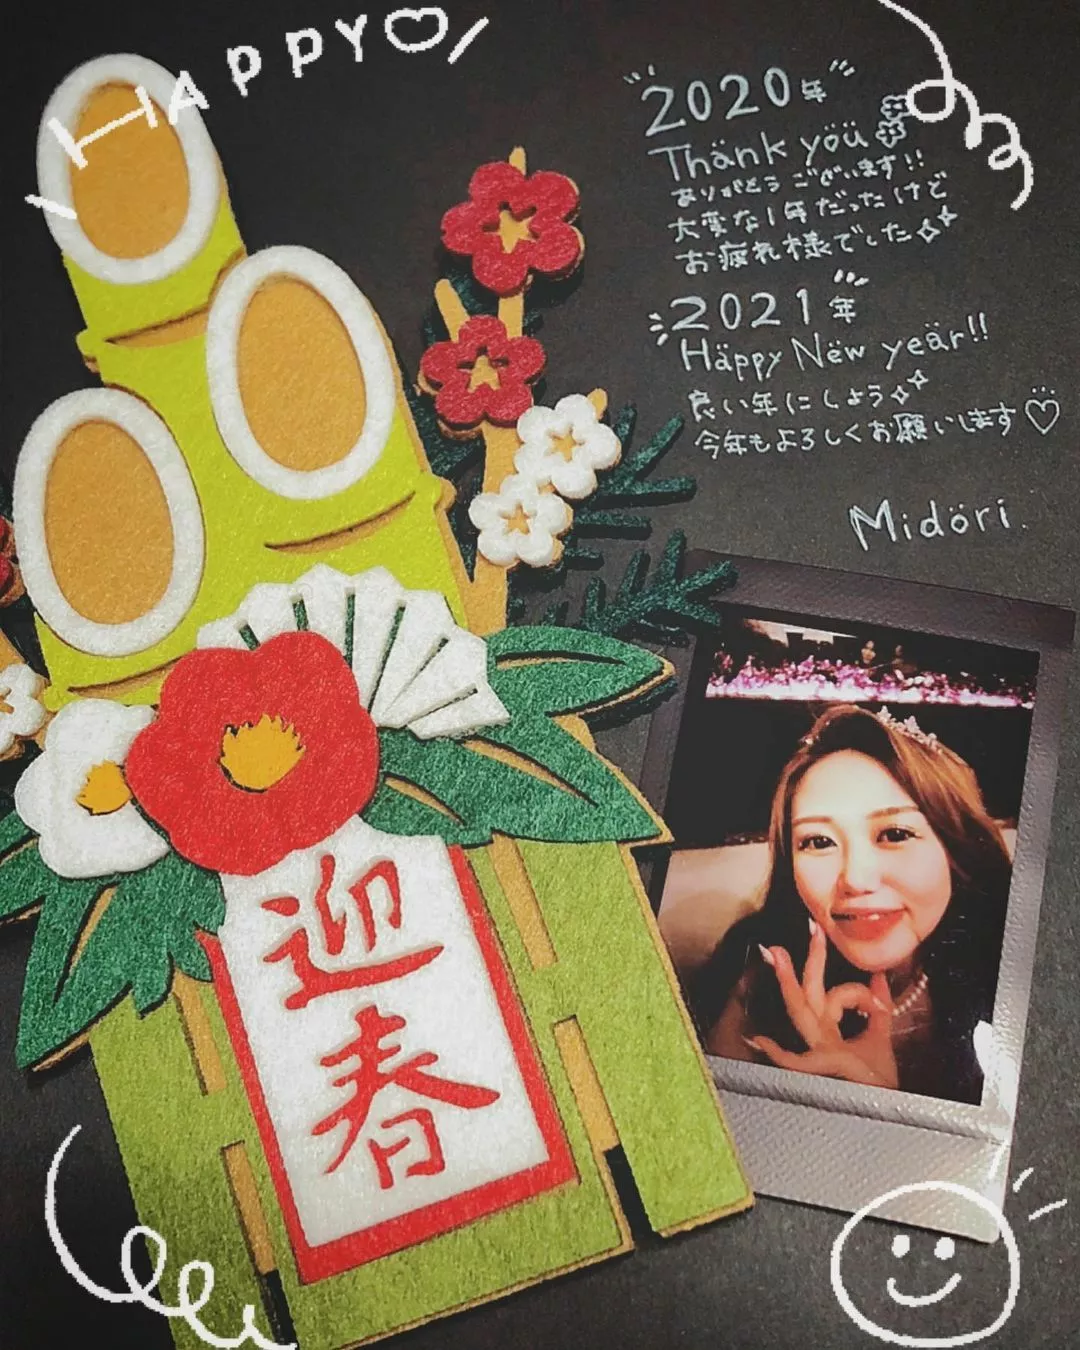 HAPPY
2020年
Thänk yöü
ありがとうございます!!
大変な1年だったけど
お疲れ様でした
2021年
Häppy Nëw yeär!!
良い年にしよう
今年もよろしくお願いします♡
Midöri.
迎春